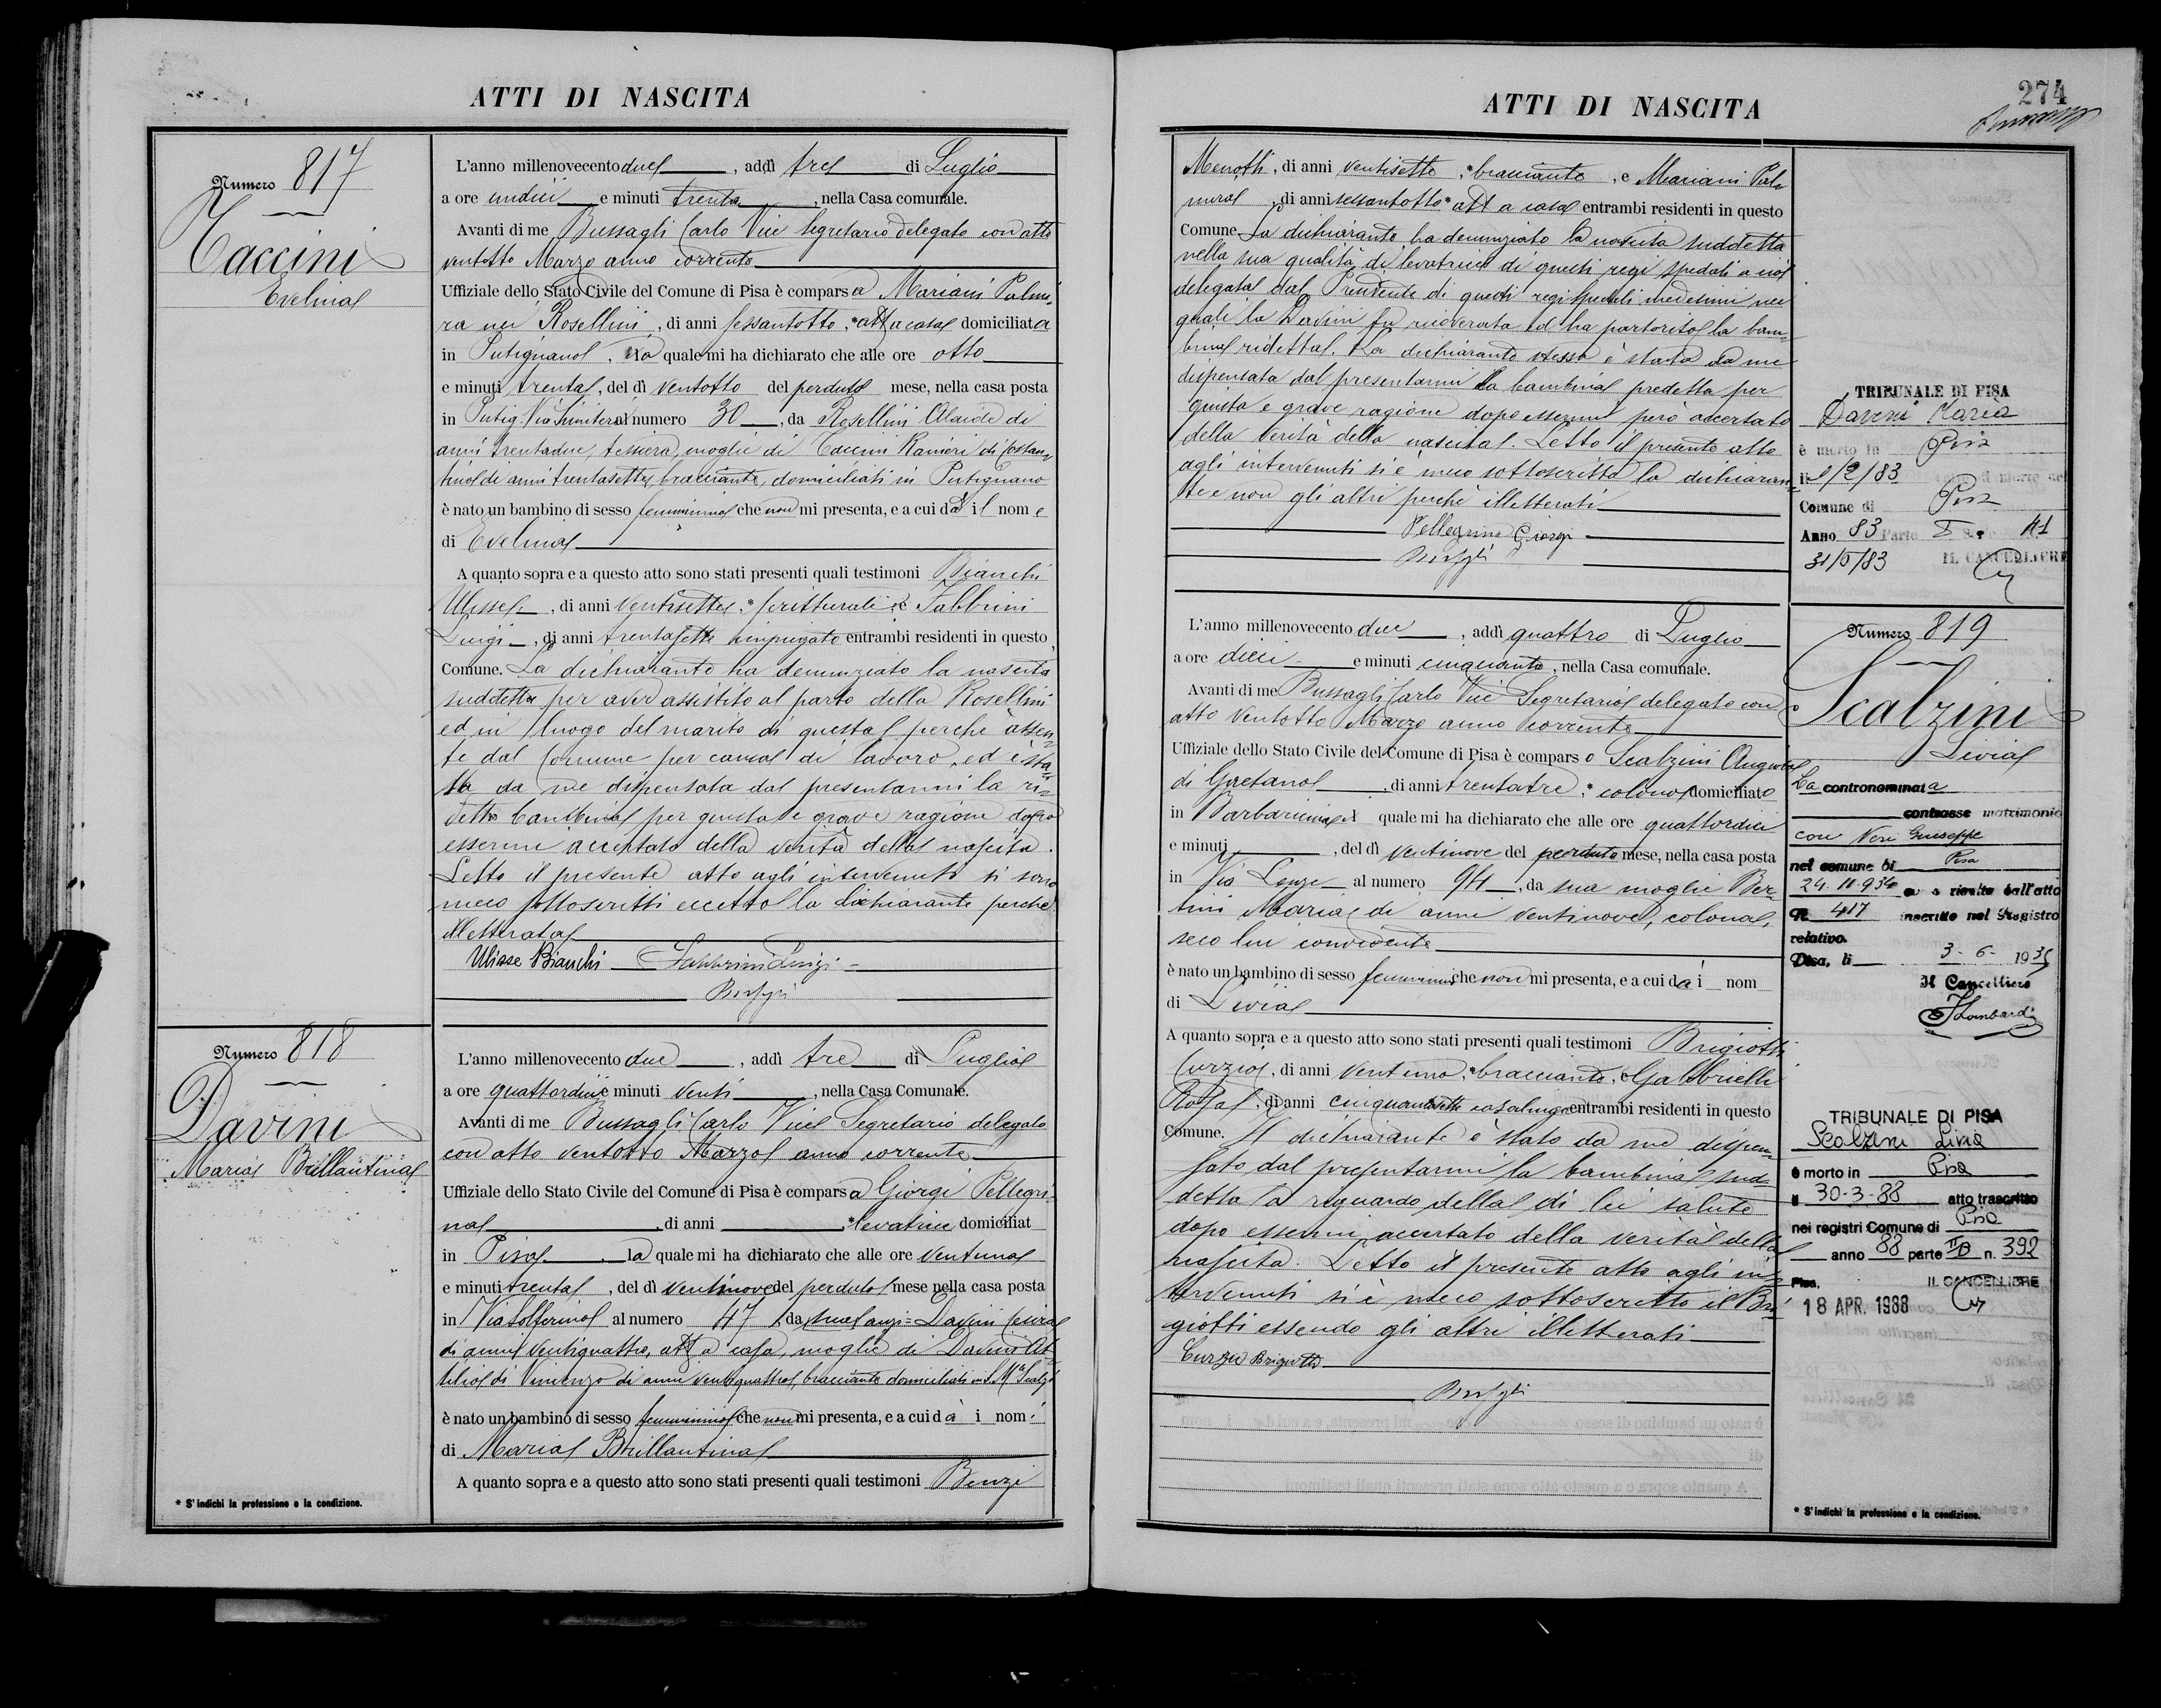 ATTI DI NASCITA
Numero 817
Taccini
Evelina
L'anno millenovecento due, addì tre di Luglio
a ore undici e minuti trenta, nella Casa comunale.
Avanti di me Bussagli Carlo Vice Segretario delegato con atto
ventotto Marzo anno corrente
Uffiziale dello Stato Civile del Comune di Pisa è comparsa Mariani Palmi-
ra nei Rosellini, di anni sessantotto, * att a casa domiciliata
in Putignano, la quale mi ha dichiarato che alle ore otto
e minuti trenta, del dì ventotto del perduto mese, nella casa posta
in Putig. Via Cimitero al numero 30, da Rosellini Alaide di
anni trentadue, tessiera, moglie di Taccini Ranieri di Costan-
tino di anni trentasette, bracciante, domiciliati in Putignano
è nato un bambino di sesso femminino che non mi presenta, e a cui dà il nome
di Evelina
A quanto sopra e a questo atto sono stati presenti quali testimoni Bianchi
Ulisse, di anni ventisette, * scritturale e Fabbrini
Luigi, di anni trentasette impiegato entrambi residenti in questo
Comune. La dichiarante ha denunziato la nascita
suddetta per aver assistito al parto della Rosellini
ed in luogo del marito di questa perchè assen-
te dal Comune per causa di lavoro, ed è sta-
ta da me dispensata dal presentarmi la ri-
detta bambina per giusta e grave ragione dopo
essermi accertato della verità della nascita.
Letto il presente atto agli intervenuti si sono
meco sottoscritti eccetto la dichiarante perchè
illetterata
Ulisse Bianchi Fabbrini Luigi
Bussagli
Numero 818
Davini
Maria Brillantina
L'anno millenovecento due, addì tre di Luglio
a ore quattordici e minuti venti, nella Casa Comunale.
Avanti di me Bussagli Carlo Vice Segretario delegato
con atto ventotto Marzo anno corrente
Uffiziale dello Stato Civile del Comune di Pisa è comparsa Giorgi Pellegri-
na, di anni, * levatrice domiciliat
in Pisa, la quale mi ha dichiarato che alle ore ventuna
e minuti trenta, del dì ventinove del perduto mese nella casa posta
in Via Solferino al numero 47, da sua anzi = Davini
di anni ventiquattro, att a casa, moglie di Davini At-
tilio di Vincenzo di anni ventiquattro, bracciante domiciliati in S. M.
è nato un bambino di sesso femminino che non mi presenta, e a cui dà i nomi
di Maria Brillantina
A quanto sopra e a questo atto sono stati presenti quali testimoni Benzi
* S'indichi la professione o la condizione.
ATTI DI NASCITA
274
Menotti, di anni ventisette, * bracciante, e Mariani Pal-
mira, di anni sessantotto * att a casa entrambi residenti in questo
Comune. La dichiarante ha denunziato la nascita suddetta
nella sua qualità di levatrice di questi regi spedali a ciò
delegata dal Presidente di questi regi spedali medesimi nei
quali la Davini fu ricoverata ed ha partorito la bam-
bina ridetta. La dichiarante stessa è stata da me
dispensata dal presentarmi la bambina predetta per
giusta e grave ragione dopo essermi però accertato
della verità della nascita. Letto il presente atto
agli intervenuti si è meco sottoscritta la dichiaran-
te e non gli altri perchè illetterati
Pellegrina Giorgi
Bussagli
TRIBUNALE DI PISA
Davini Maria
è morto in Pisa
Comune di Pisa
Anno 83 Parte I 41
31/5/83 IL CANCELLIERE
L'anno millenovecento due, addì quattro di Luglio
a ore dieci e minuti cinquanta, nella Casa comunale.
Avanti di me Bussagli Carlo Vice Segretario delegato con
atto ventotto Marzo anno corrente
Uffiziale dello Stato Civile del Comune di Pisa è comparso Scalzini Angiolo
di Gaetano, di anni trentatre, * colono domiciliato
in Barbaricina il quale mi ha dichiarato che alle ore quattordici
e minuti, del dì ventinove del perduto mese, nella casa posta
in Via Lenze al numero 94, da sua moglie Ber-
tini Maria di anni ventinove, colona,
seco lui convivente
è nato un bambino di sesso femminino che non mi presenta, e a cui dà i nom
di Livia
A quanto sopra e a questo atto sono stati presenti quali testimoni Brigiotti
Curzio, di anni ventuno, * bracciante, e Gabbrielli
Rosa, di anni cinquantasette casalinga entrambi residenti in questo
Comune. Il dichiarante è stato da me dispen-
sato dal presentarmi la bambina sud-
detta a riguardo della di lei salute
dopo essermi accertato della verità della
nascita. Letto il presente atto agli in-
tervenuti si è meco sottoscritto il Bri-
giotti essendo gli altri illetterati
Curzio Brigiotti
Bussagli
Numero 819
Scalzini
Livia
La contronominata
contrasse matrimonio
con Neri Giuseppe
nel comune di Pisa
24.11.934 come risulta dall'atto
N. 417 inscritto nel Registro
relativo.
Pisa, li 3-6-1935
Il Cancelliere
Lombardi
TRIBUNALE DI PISA
Scalzini Livia
è morto in Pisa
il 30-3-88 atto trascritto
nei registri Comune di Pisa
anno 88 parte II B n. 392
Pisa, IL CANCELLIERE
18 APR. 1988
* S'indichi la professione o la condizione.